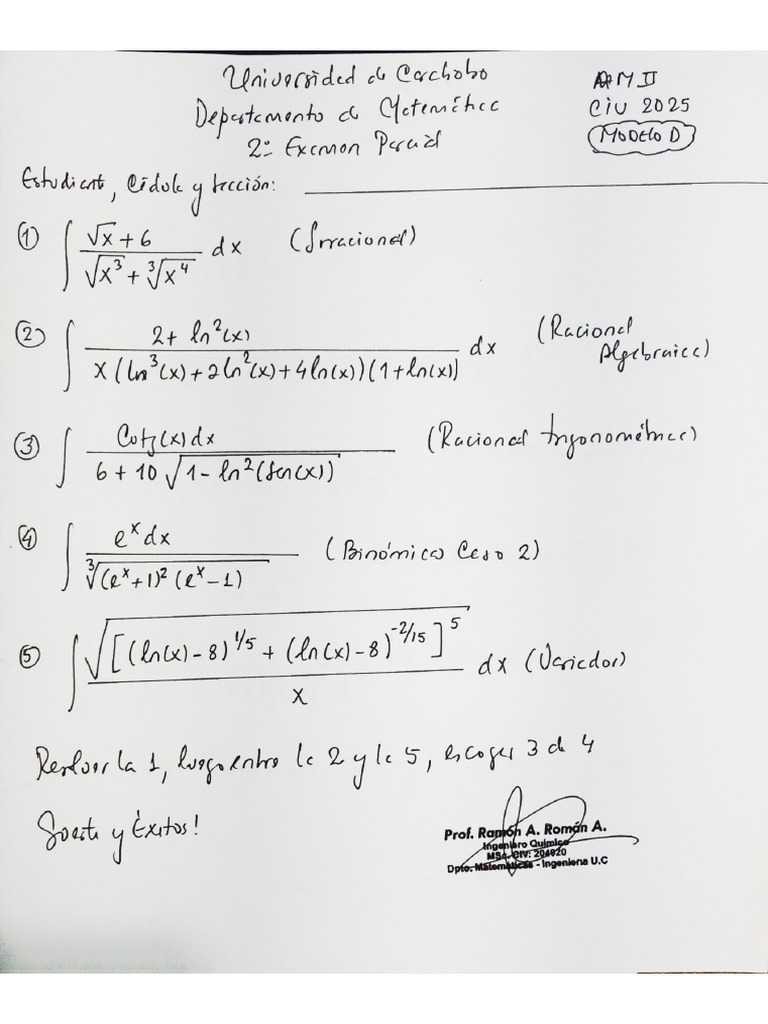 Universidad de Carabobo
Departamento de Matemática
2º Examen Parcial
AM II
CIU 2025
MODELO D
Estudiante, Cédula y sección:
① ∫ (√x + 6) / (√x³ + ∛x⁴) dx (Irracional)
② ∫ (2 + ln²(x)) / (x (ln³(x) + 2ln²(x) + 4ln(x)) (1 + ln(x))) dx (Racional Algebraica)
③ ∫ Cotg(x) dx / (6 + 10 √(1 - ln²(Sen(x)))) (Racional trigonométrica)
④ ∫ eˣ dx / ∛((eˣ + 1)² (eˣ - 1)) (Binómica Caso 2)
⑤ ∫ √([(ln(x) - 8)^(1/5) + (ln(x) - 8)^(-2/15)]⁵) / x dx (Variador)
Resolver la 1, luego entre la 2 y la 5, escoger 3 de 4
Suerte y Éxitos!
Prof. Ramón A. Román A.
Ingeniero Químico
MSc. CIV: 204920
Dpto. Matemáticas - Ingeniería U.C